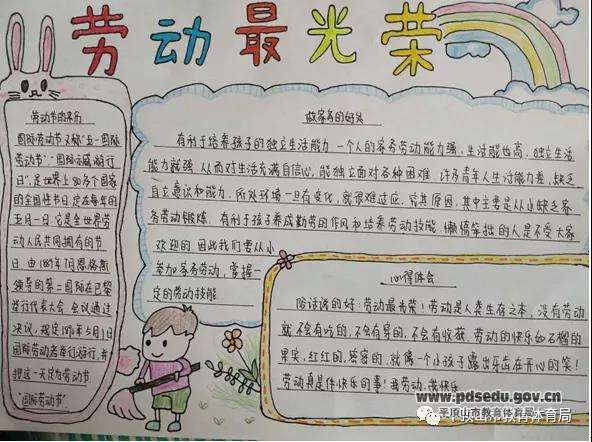 劳动最光荣
劳动节的来历
国际劳动节又称"五一国际
劳动节""国际示威游行
日",是世界上80多个国家
的全国性节日.定在每年的
五月一日.它是全世界劳
动人民共同拥有的节
日.由1889年7月恩格斯
领导的第二国际在巴黎
举行代表大会.会议通过
决议,规定1890年5月1日
国际劳动者举行游行,并
把这一天定为劳动节.
国际劳动节
做家务的好处
有利于培养孩子的独立生活能力 一个人的家务劳动能力强,生活能也高,独立生活
能力就强.从而对生活充满自信心,能独立面对各种困难 许多青年人生活能力差,缺乏
自立意识和能力,所处环境一旦有变化,就很难适应,究其原因,其中主要是从小缺乏家
务劳动锻炼.有利于孩子养成勤劳的作风和培养劳动技能.懒惰笨拙的人是不受大家
欢迎的 因此我们要从小
参加家务劳动,掌握一
定的劳动技能
心得体会
俗话说的好:劳动最光荣!劳动是人类生存之本,没有劳动
就不会有吃的,不会有穿的,不会有收获.劳动的快乐如石榴的
果实,红红的,密密的,就像一个小孩子露出牙齿在开心的笑!
劳动真是件快乐的事!我劳动,我快乐
www.pdsedu.gov.cn
平顶山市教育体育局
平顶山市教育体育局